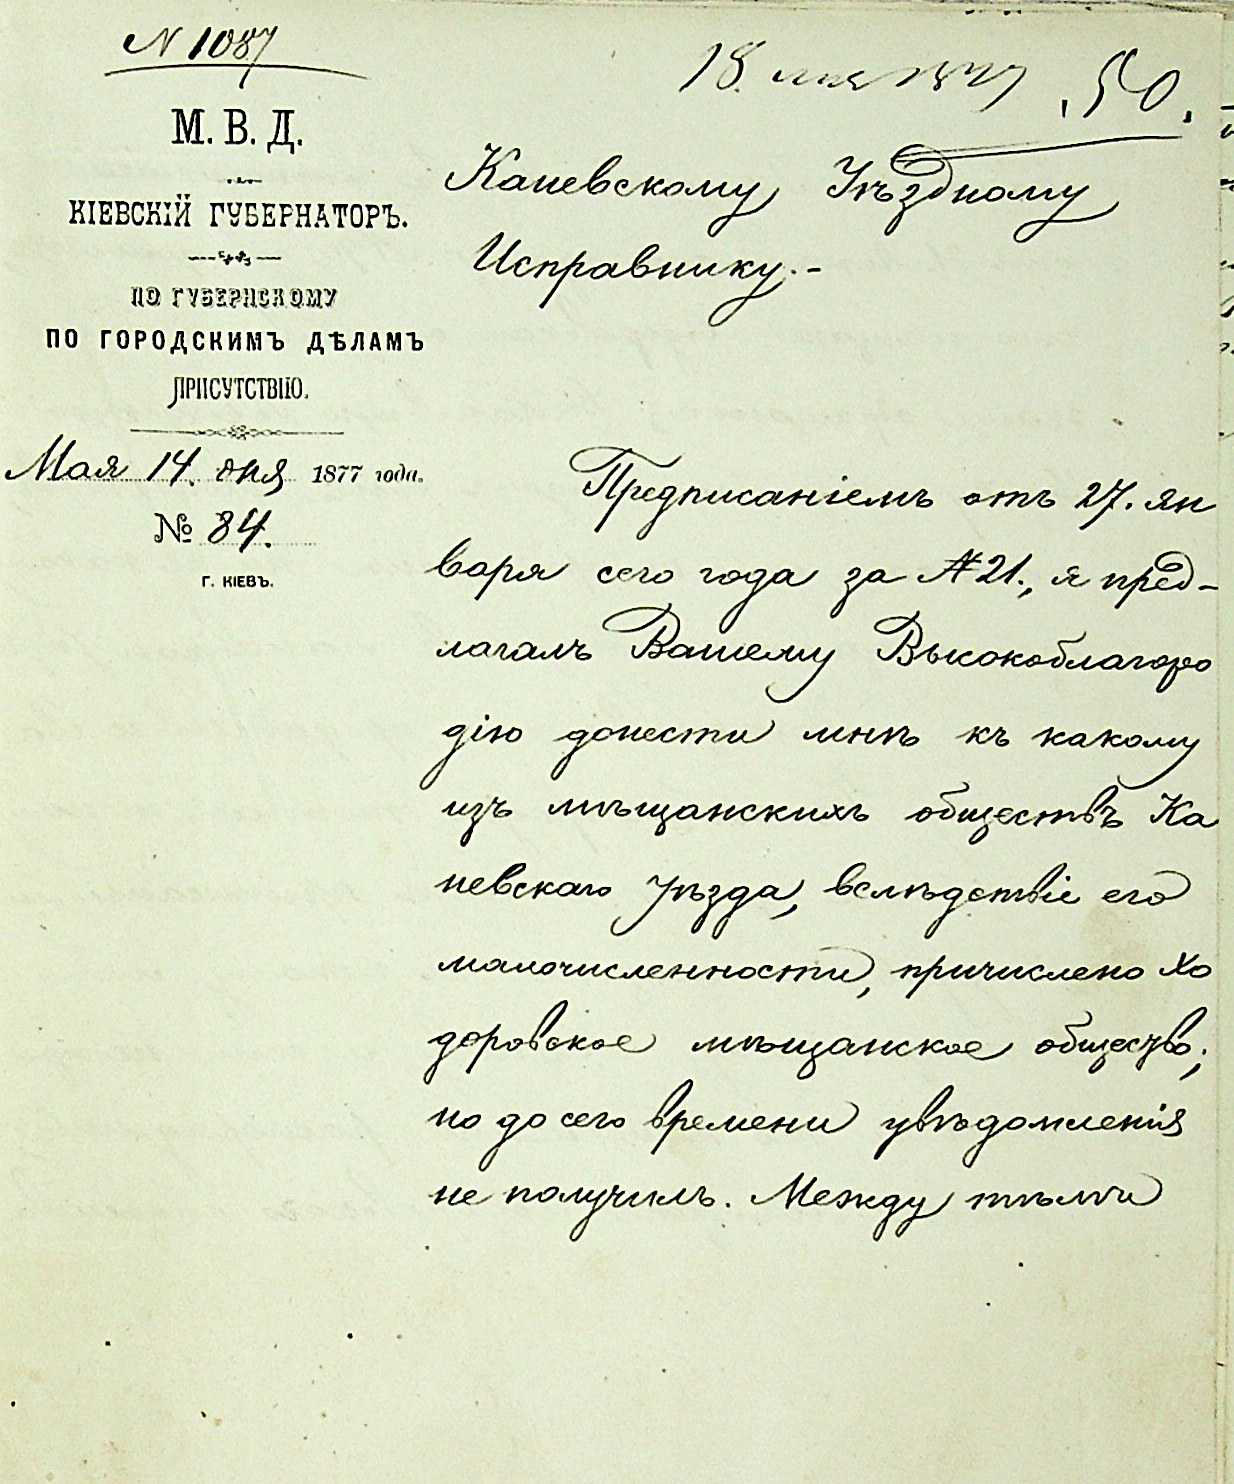 N 1087
18. мая 1877
50.
М. В. Д.
КІЕВСКІЙ ГУБЕРНАТОРЪ.
ПО ГУБЕРНСКОМУ
ПО ГОРОДСКИМЪ ДѢЛАМЪ
ПРИСУТСТВІЮ.
Мая 14. дня 1877 года.
№ 84.
Г. КІЕВЪ.
Каневскому Уѣздному
Исправнику.-
Предписаніемъ отъ 27. ян
варя сего года за № 21., я пред-
лагалъ Вашему Высокоблагоро
дію донести мнѣ къ какому
изъ мѣщанскихъ обществъ Ка
невскаго Уѣзда, вслѣдствіе его
малочисленности, причислено Хо
доровское мѣщанское общество;
но до сего времени увѣдомленія
не получилъ. Между тѣмъ